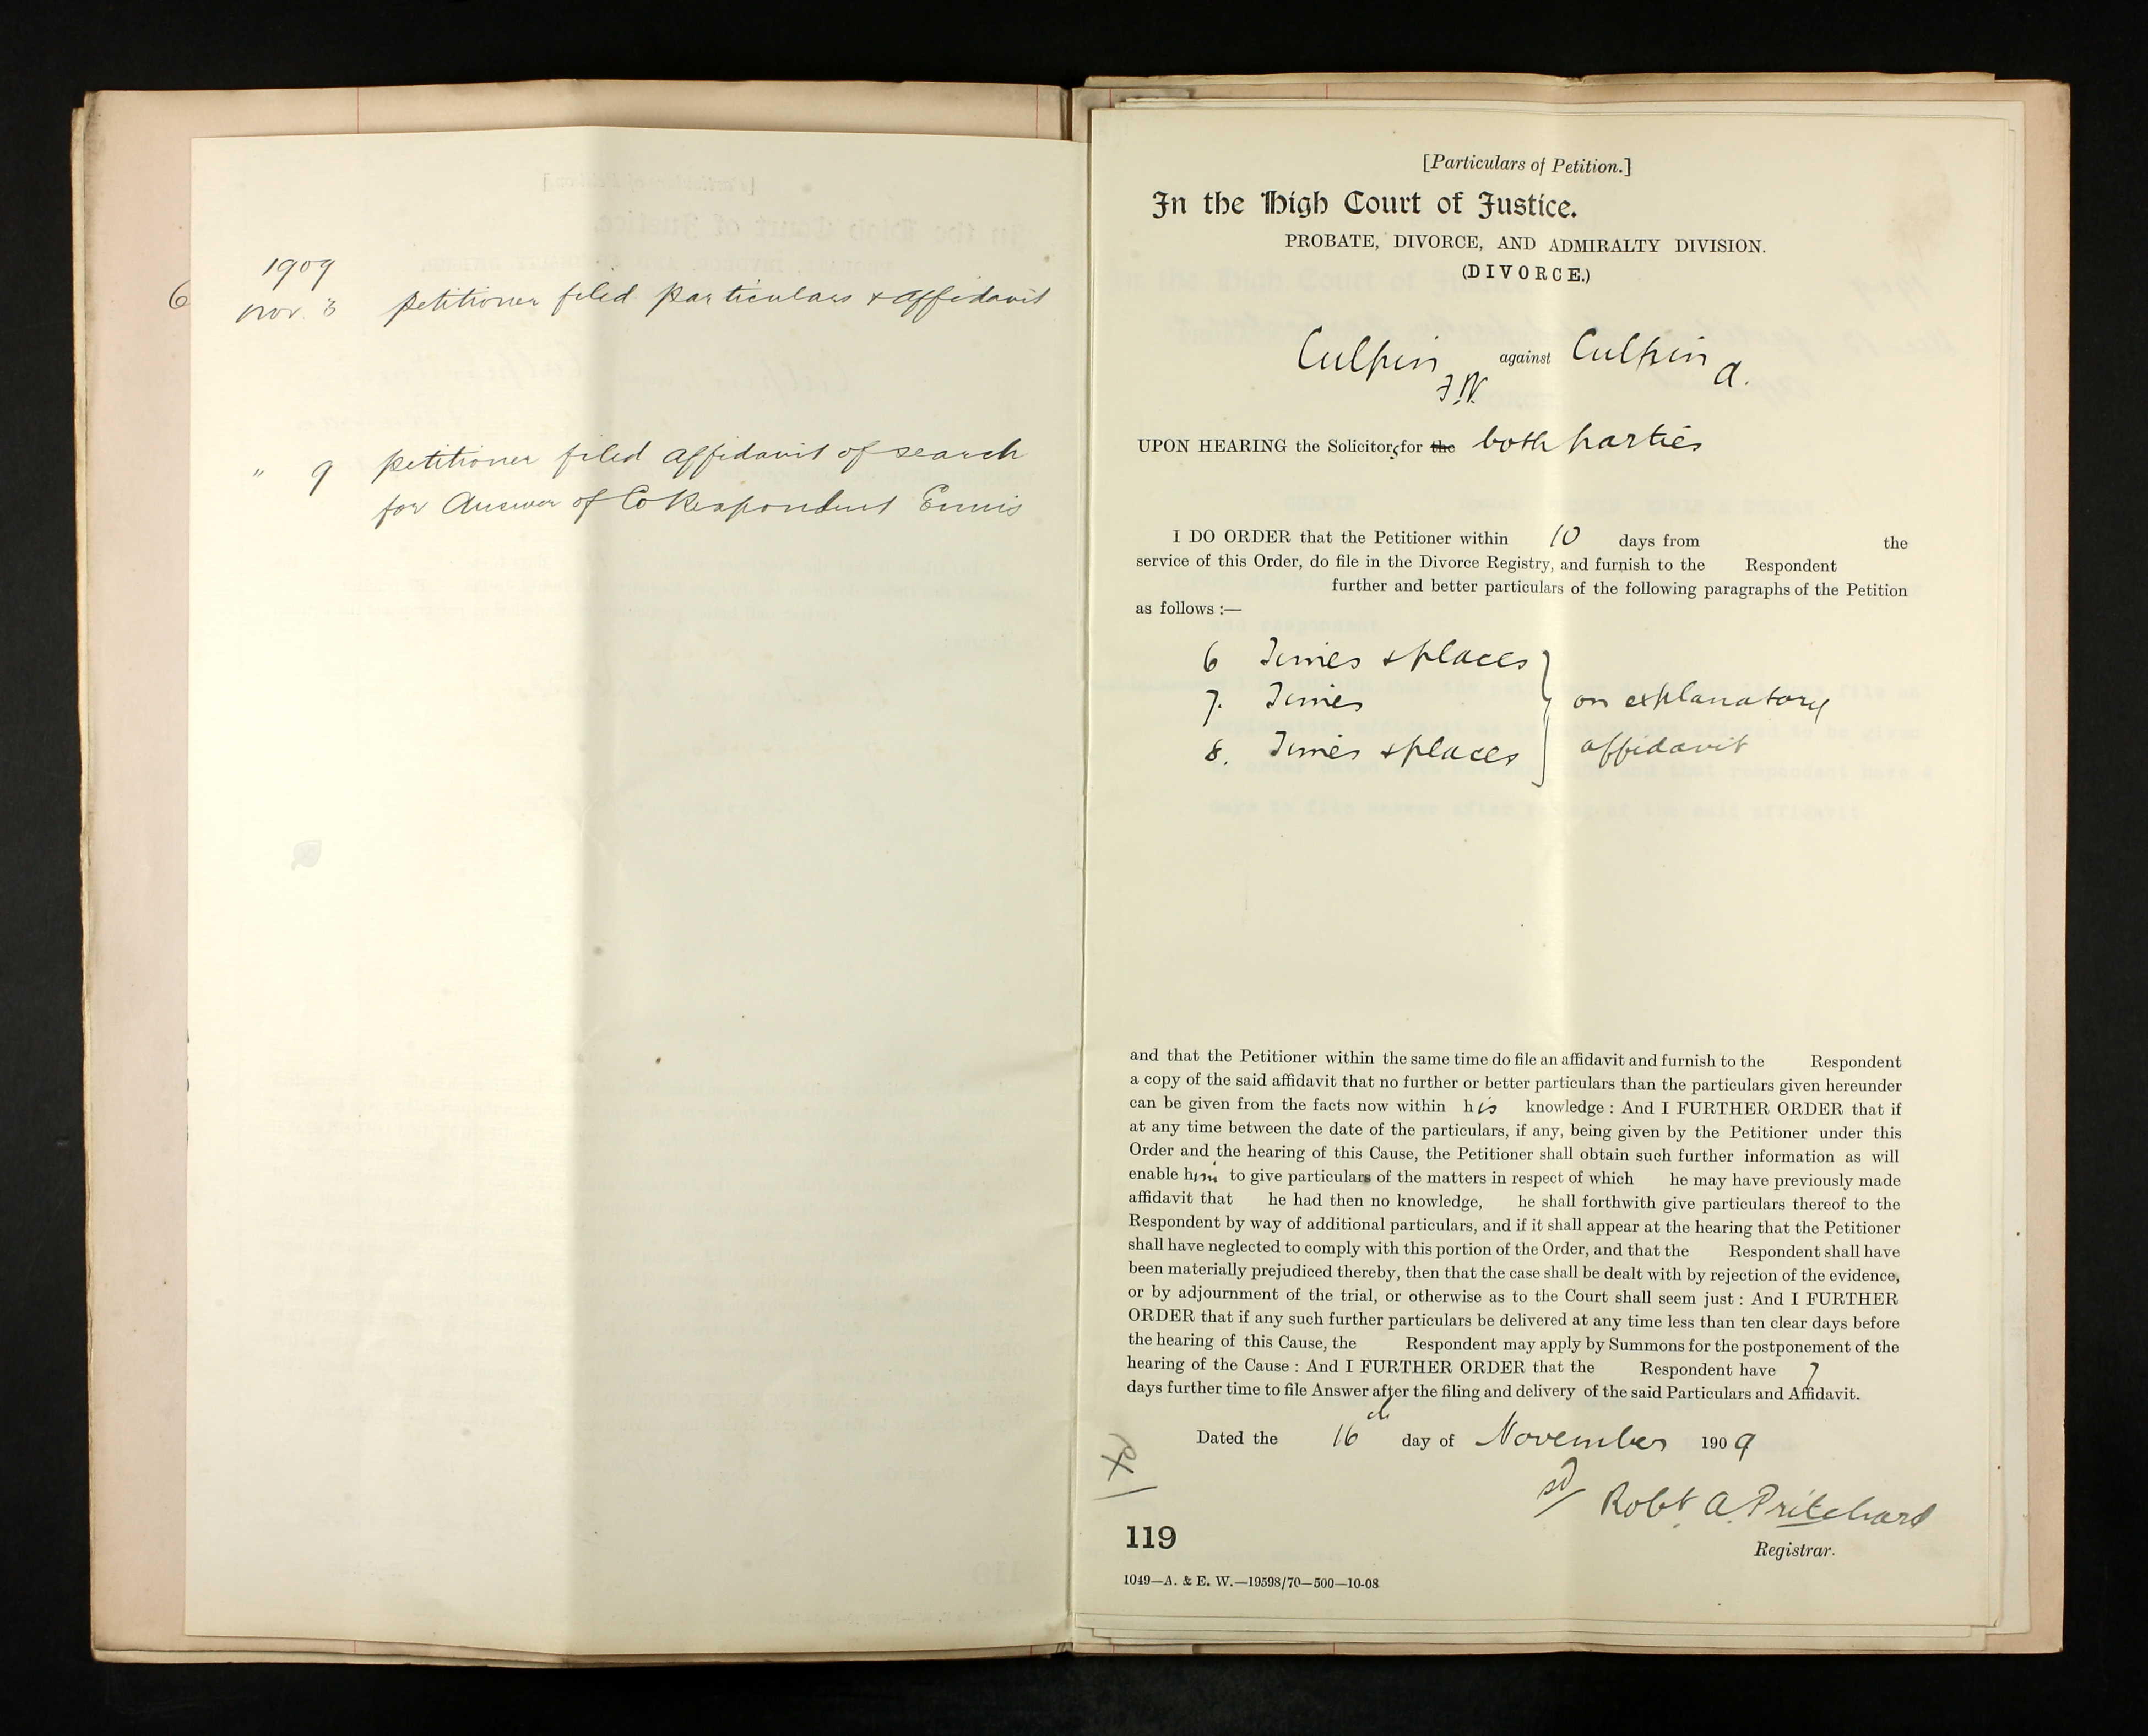 1909
6
Nov. 3 Petitioner filed Particulars & Affidavit
" 9 Petitioner filed Affidavit of search
for Answer of Co Respondent Ennis
[Particulars of Petition.]
In the High Court of Justice.
PROBATE, DIVORCE, AND ADMIRALTY DIVISION.
(DIVORCE.)
Culpin F.W. against Culpin A.
UPON HEARING the Solicitors for the both parties
I DO ORDER that the Petitioner within 10 days from the
service of this Order, do file in the Divorce Registry, and furnish to the Respondent
further and better particulars of the following paragraphs of the Petition
as follows :—
6 Times & places
7. Times
8. Times & places
on explanatory
affidavit
and that the Petitioner within the same time do file an affidavit and furnish to the Respondent
a copy of the said affidavit that no further or better particulars than the particulars given hereunder
can be given from the facts now within his knowledge : And I FURTHER ORDER that if
at any time between the date of the particulars, if any, being given by the Petitioner under this
Order and the hearing of this Cause, the Petitioner shall obtain such further information as will
enable him to give particulars of the matters in respect of which he may have previously made
affidavit that he had then no knowledge, he shall forthwith give particulars thereof to the
Respondent by way of additional particulars, and if it shall appear at the hearing that the Petitioner
shall have neglected to comply with this portion of the Order, and that the Respondent shall have
been materially prejudiced thereby, then that the case shall be dealt with by rejection of the evidence,
or by adjournment of the trial, or otherwise as to the Court shall seem just : And I FURTHER
ORDER that if any such further particulars be delivered at any time less than ten clear days before
the hearing of this Cause, the Respondent may apply by Summons for the postponement of the
hearing of the Cause : And I FURTHER ORDER that the Respondent have 7
days further time to file Answer after the filing and delivery of the said Particulars and Affidavit.
Dated the 16th day of November 1909
sd/ Robt. A. Pritchard
Registrar.
119
1049—A. & E. W.—19598/70—500—10-08